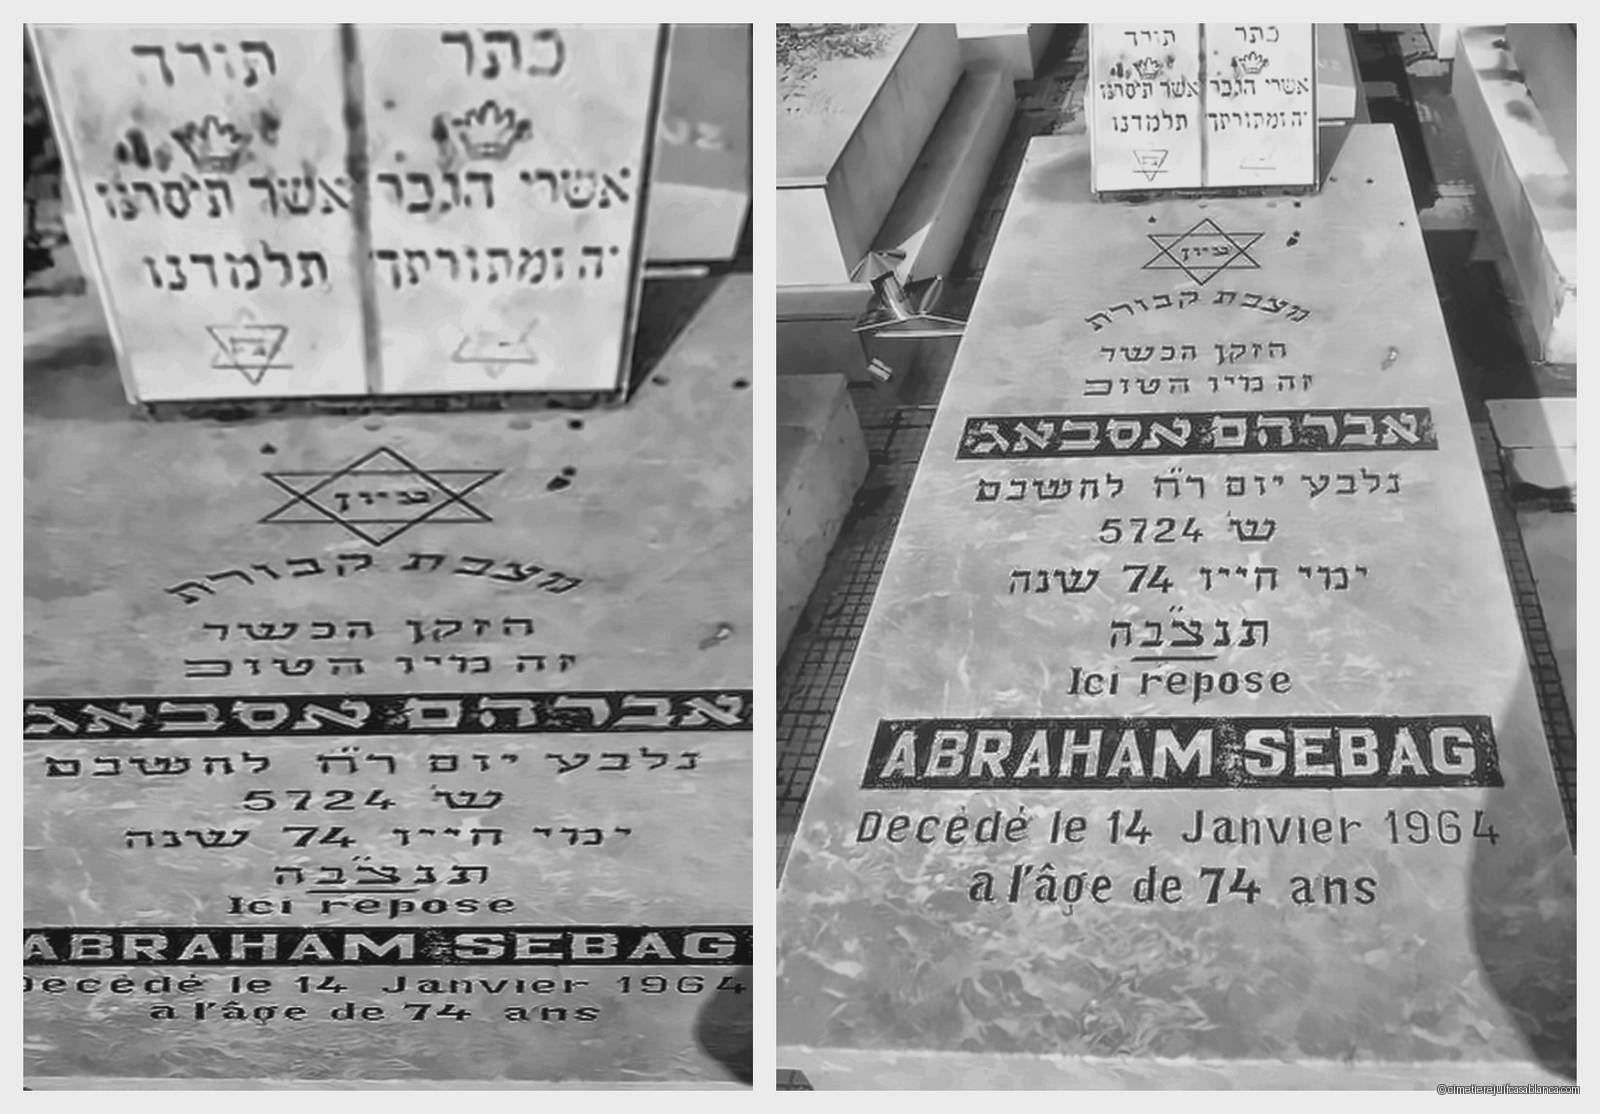 כתר תורה
אשרי הגבר אשר תיסרנו
יה ומתורתך תלמדנו
ציון
מצבת קבורת
הזקן הכשר
זה מיו הטוב
אברהם אסבאג
נלבע יום ר״ח להשבט
ש׳ 5724
ימי חייו 74 שנה
תנצ״בה
Ici repose
ABRAHAM SEBAG
Decédé le 14 Janvier 1964
a l'âge de 74 ans
כתר תורה
אשרי הגבר אשר תיסרנו
יה ומתורתך תלמדנו
ציון
מצבת קבורת
הזקן הכשר
זה מיו הטוב
אברהם אסבאג
נלבע יום ר״ח להשבט
ש׳ 5724
ימי חייו 74 שנה
תנצ״בה
Ici repose
ABRAHAM SEBAG
Decédé le 14 Janvier 1964
a l'âge de 74 ans
©cimetierejuifcasablanca.com